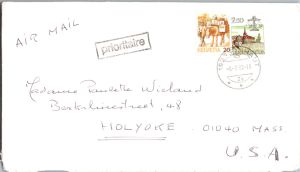 AIR MAIL
prioritaire
HELVETIA 20
2.50
Madame Paulette Wieland
48
HOLYOKE 01040 MASS
U.S.A.